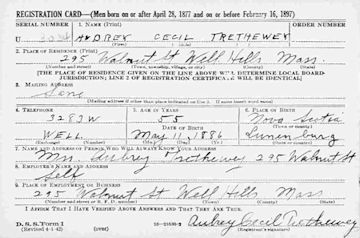 REGISTRATION CARD—(Men born on or after April 28, 1877 and on or before February 16, 1897)
SERIAL NUMBER 1. NAME (Print) ORDER NUMBER
U AUBREY CECIL TRETHEWEY
(First) (Middle) (Last)
2. PLACE OF RESIDENCE (Print)
295 Walnut St Well. Hills Mass.
(Number and street) (Town, township, village, or city) (County) (State)
[THE PLACE OF RESIDENCE GIVEN ON THE LINE ABOVE WILL DETERMINE LOCAL BOARD
JURISDICTION; LINE 2 OF REGISTRATION CERTIFICATE WILL BE IDENTICAL]
3. MAILING ADDRESS
Same
(Mailing address if other than place indicated on line 2. If same insert word same)
4. TELEPHONE 5. AGE IN YEARS 6. PLACE OF BIRTH
3283W 55 Nova Scotia
DATE OF BIRTH (Town or county)
WELL. May 11, 1886 Lunenburg
(Exchange) (Number) (Mo.) (Day) (Yr.) (State or country)
7. NAME AND ADDRESS OF PERSON WHO WILL ALWAYS KNOW YOUR ADDRESS
Mrs. Aubrey Trethewey 295 Walnut St
8. EMPLOYER'S NAME AND ADDRESS
Self
9. PLACE OF EMPLOYMENT OR BUSINESS
295 Walnut St Well Hills Mass
(Number and street or R. F. D. number) (Town) (County) (State)
I AFFIRM THAT I HAVE VERIFIED ABOVE ANSWERS AND THAT THEY ARE TRUE.
D. S. S. Form 1
(Revised 4-1-42) (over) Aubrey Cecil Trethewey
(Registrant's signature)